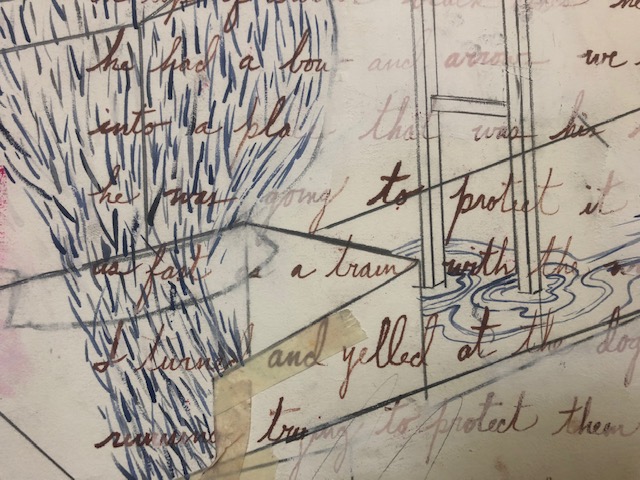 he had a bow and arrow we
into a place that was his
he was going to protect it
as fast as a train with the
I turned and yelled at the dog
trying to protect them